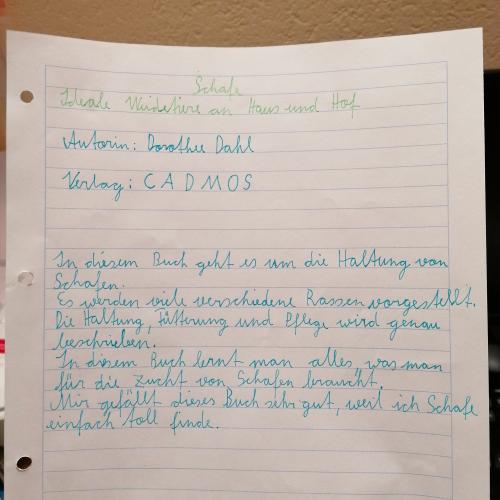 Schafe
Ideale Weidetiere an Haus und Hof
Autorin: Dorothee Dahl
Verlag: CADMOS
In diesem Buch geht es um die Haltung von
Schafen.
Es werden viele verschiedene Rassen vorgestellt.
Die Haltung, Fütterung und Pflege wird genau
beschrieben.
In diesem Buch lernt man alles, was man
für die Zucht von Schafen braucht.
Mir gefällt dieses Buch sehr gut, weil ich Schafe
einfach toll finde.